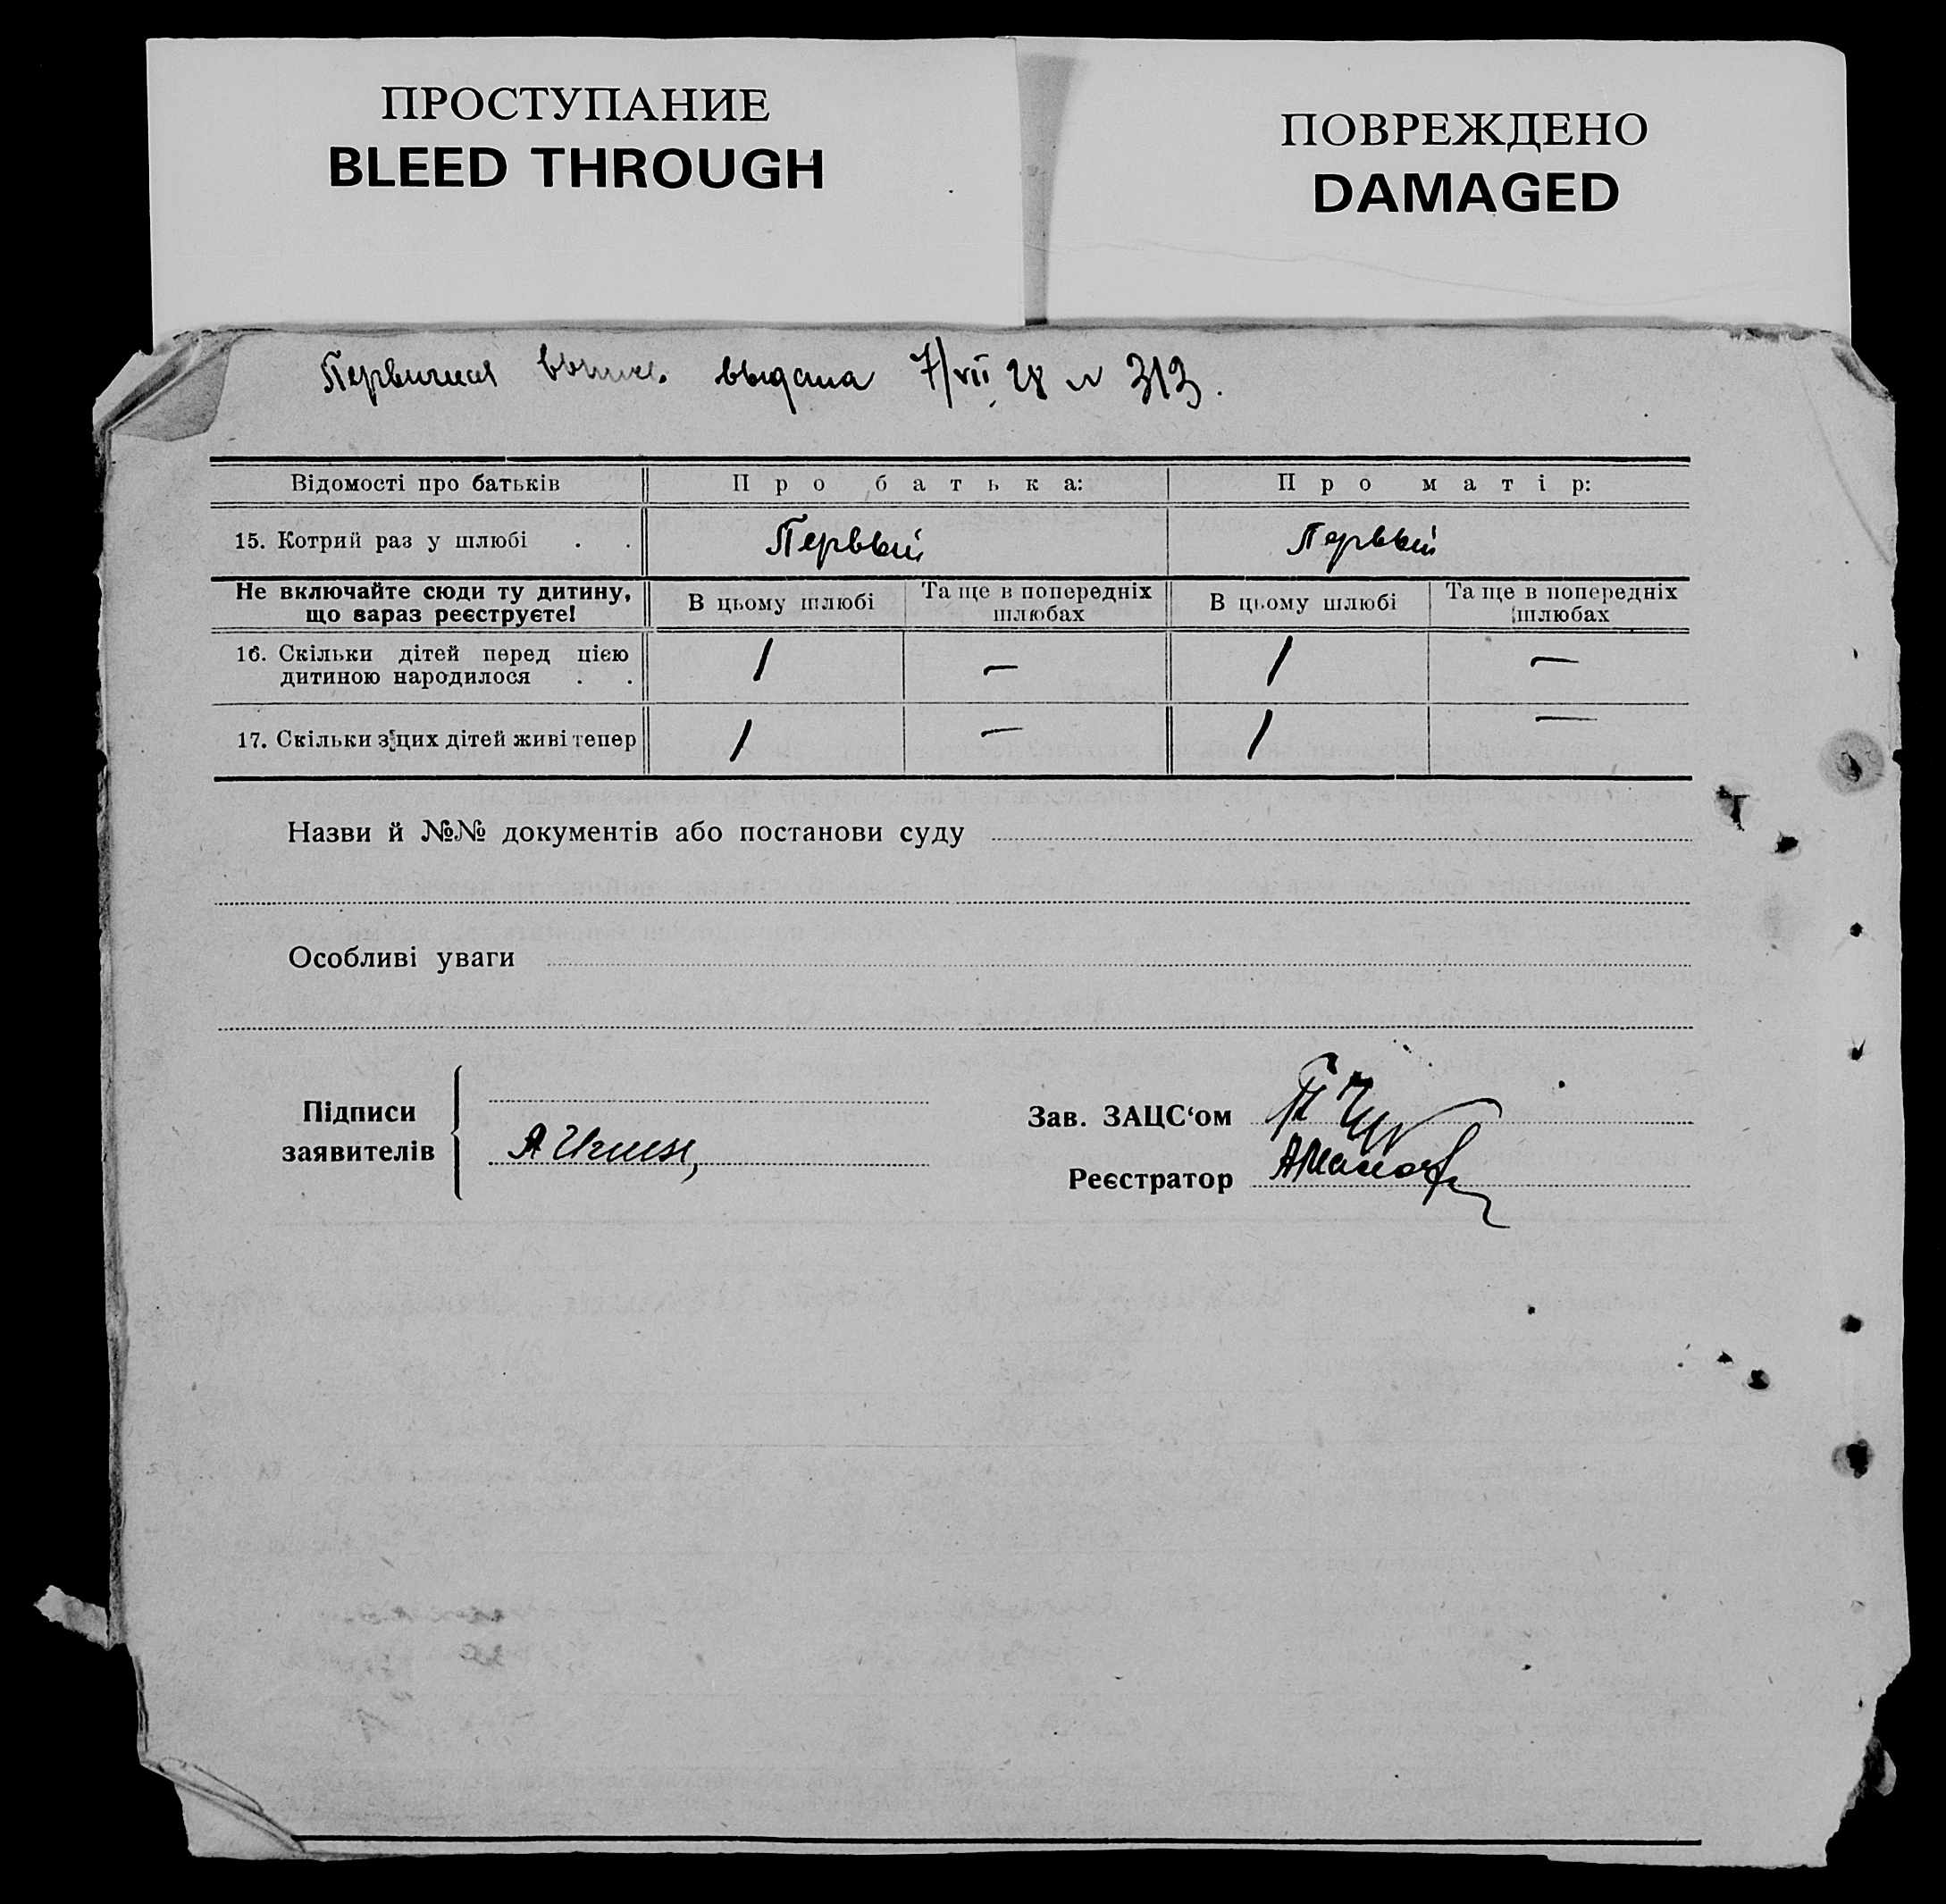 ПРОСТУПАНИЕ
BLEED THROUGH
ПОВРЕЖДЕНО
DAMAGED
Первичная выпис. выдана 7/VII 28 № 313.
Відомості про батьків Про батька: Про матір:
15. Котрий раз у шлюбі . . Первый Первый
Не включайте сюди ту дитину, що зараз реєструєте! В цьому шлюбі Та ще в попередніх шлюбах В цьому шлюбі Та ще в попередніх шлюбах
16. Скільки дітей перед цією дитиною народилося . . 1 — 1 —
17. Скільки з цих дітей живі тепер 1 — 1 —
Назви й №№ документів або постанови суду
Особливі уваги
Підписи заявителів
Зав. ЗАЦС‘ом
Реєстратор